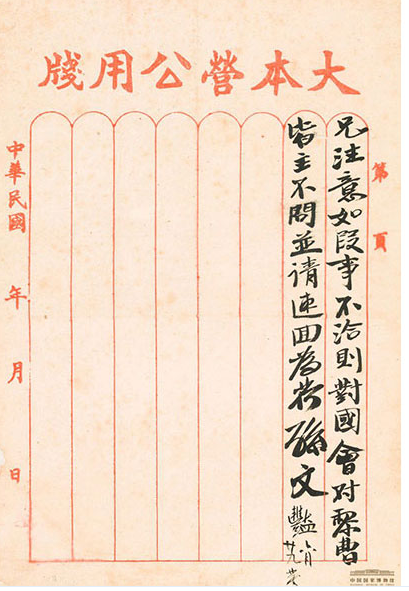 大本營公用牋
第 頁
兄注意如段事不洽則對國會对黎曹
皆主不問並請速回為荷孫文豔
中華民國 年 月 日
中国国家博物馆